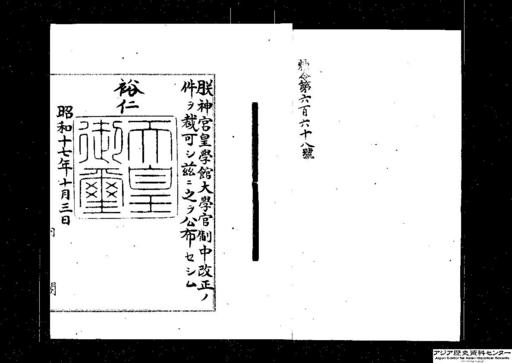 勅令第六百六十八號
朕神宮皇學館大學官制中改正ノ
件ヲ裁可シ茲ニ之ヲ公布セシム
裕仁
天皇御璽
昭和十七年十月三日
内
閣
アジア歴史資料センター
Japan Center for Asian Historical Records